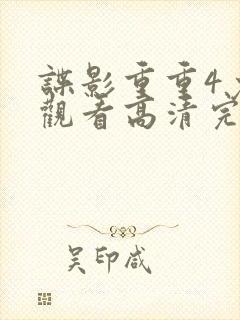 諜影重重4
觀看高清完
吴印咸